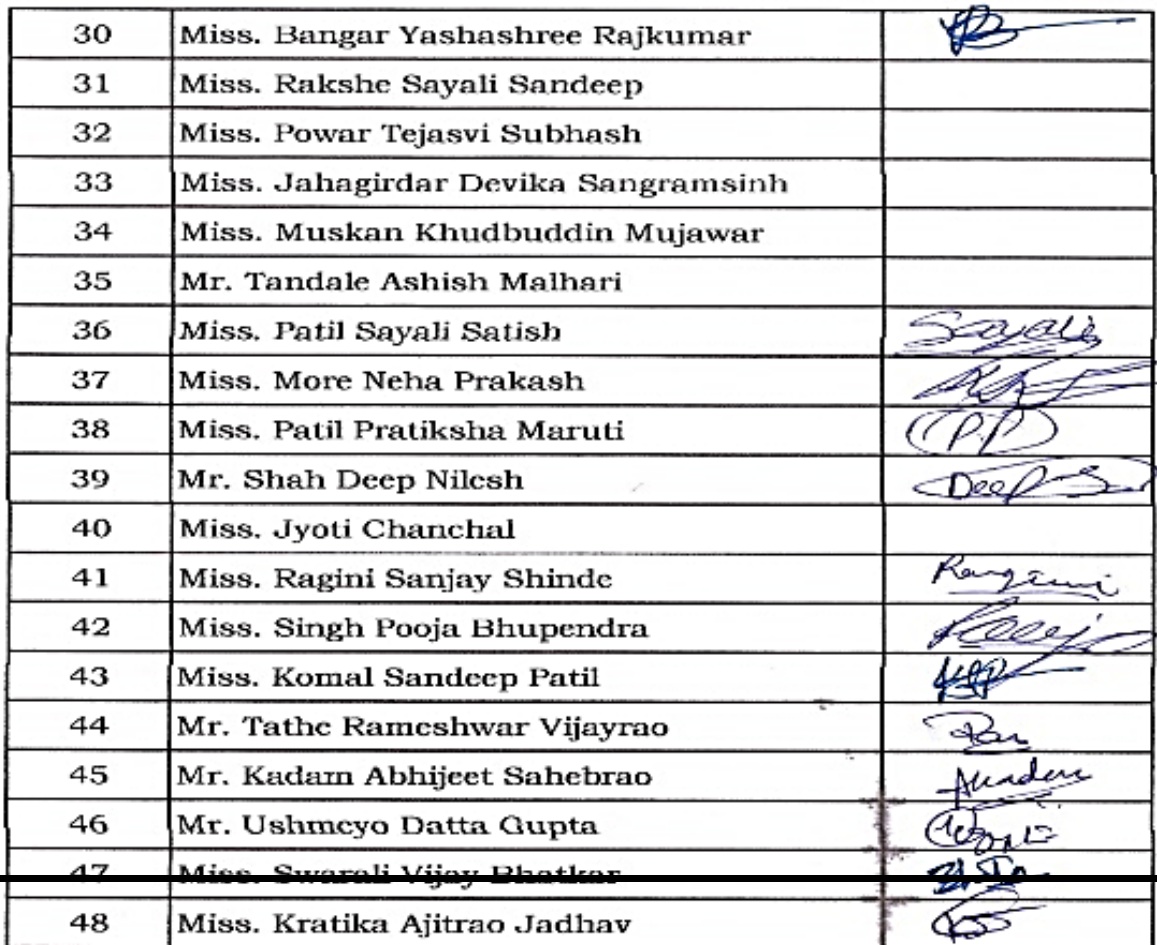 30 Miss. Bangar Yashashree Rajkumar
31 Miss. Rakshe Sayali Sandeep
32 Miss. Powar Tejasvi Subhash
33 Miss. Jahagirdar Devika Sangramsinh
34 Miss. Muskan Khudbuddin Mujawar
35 Mr. Tandale Ashish Malhari
36 Miss. Patil Sayali Satish Sayali
37 Miss. More Neha Prakash
38 Miss. Patil Pratiksha Maruti P.P
39 Mr. Shah Deep Nilesh Deep
40 Miss. Jyoti Chanchal
41 Miss. Ragini Sanjay Shinde
42 Miss. Singh Pooja Bhupendra
43 Miss. Komal Sandeep Patil
44 Mr. Tathe Rameshwar Vijayrao
45 Mr. Kadam Abhijeet Sahebrao
46 Mr. Ushmeyo Datta Gupta
47 Miss. Swarali Vijay Bhatkar
48 Miss. Kratika Ajitrao Jadhav